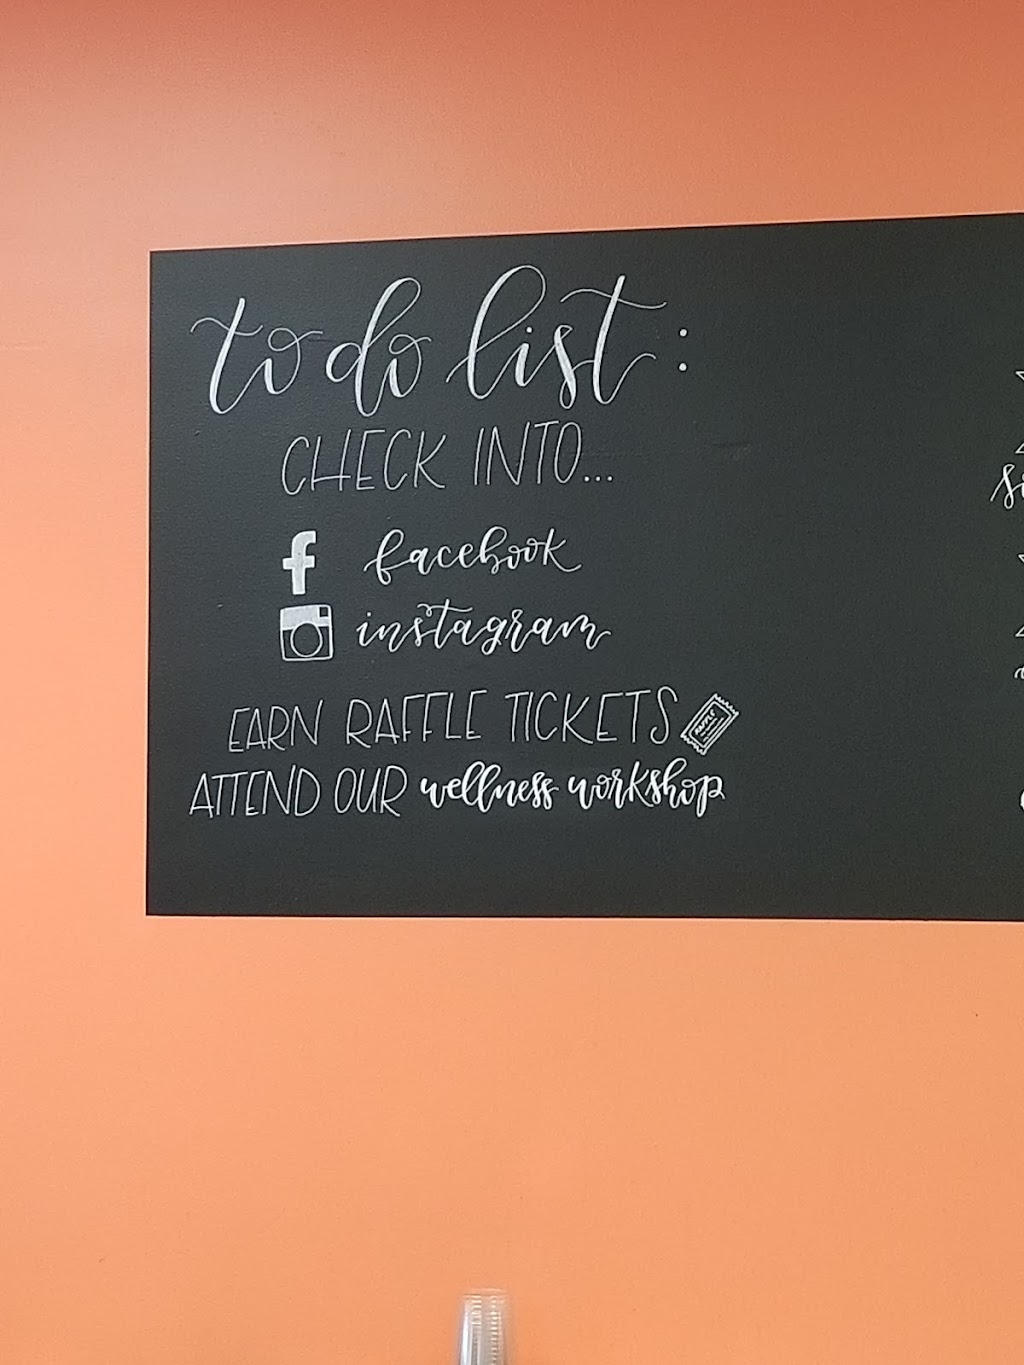 to do list:
CHECK INTO...
f facebook
instagram
EARN RAFFLE TICKETS
RAFFLE
ATTEND OUR wellness workshop